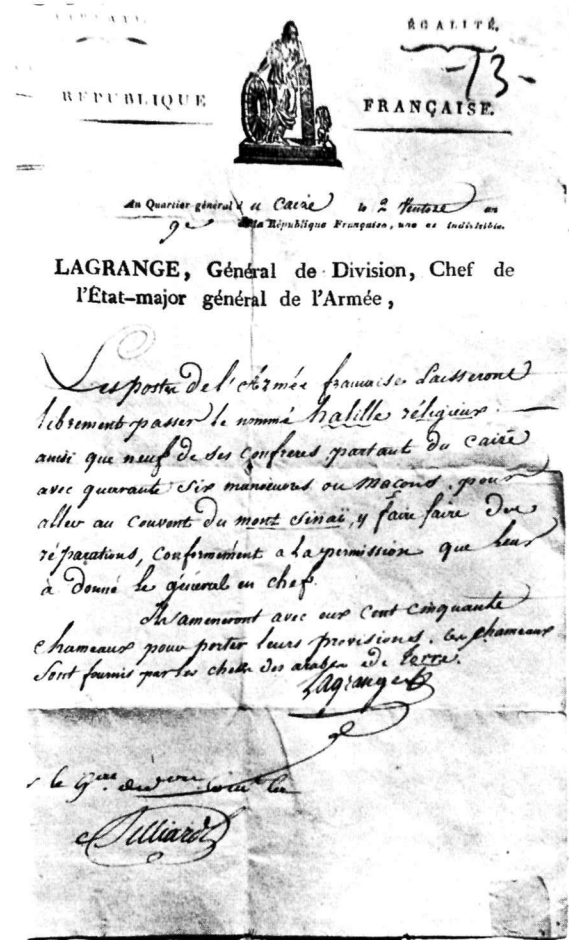 ÉGALITÉ.
-13-
RÉPUBLIQUE FRANÇAISE.
Au Quartier-général du Caire le 2 Ventose an
9e de la République Française, une et indivisible.
LAGRANGE, Général de Division, Chef de
l'État-major général de l'Armée,
Les postes de l'Armée française Laisseront
librement passer le nommé halille réligieux
ainsi que neuf de ses confreres partant du caire
avec quarante six manœuvres ou maçons, pour
aller au couvent du mont sinaï, y faire faire des
réparations, conformement a la permission que leur
à donné le général en chef.
Ils ameneront avec eux cent cinquante
chameaux pour porter leurs provisions. les chameaux
sont fournis par les cheks des arabes de terre.
Lagrange
le
Belliard